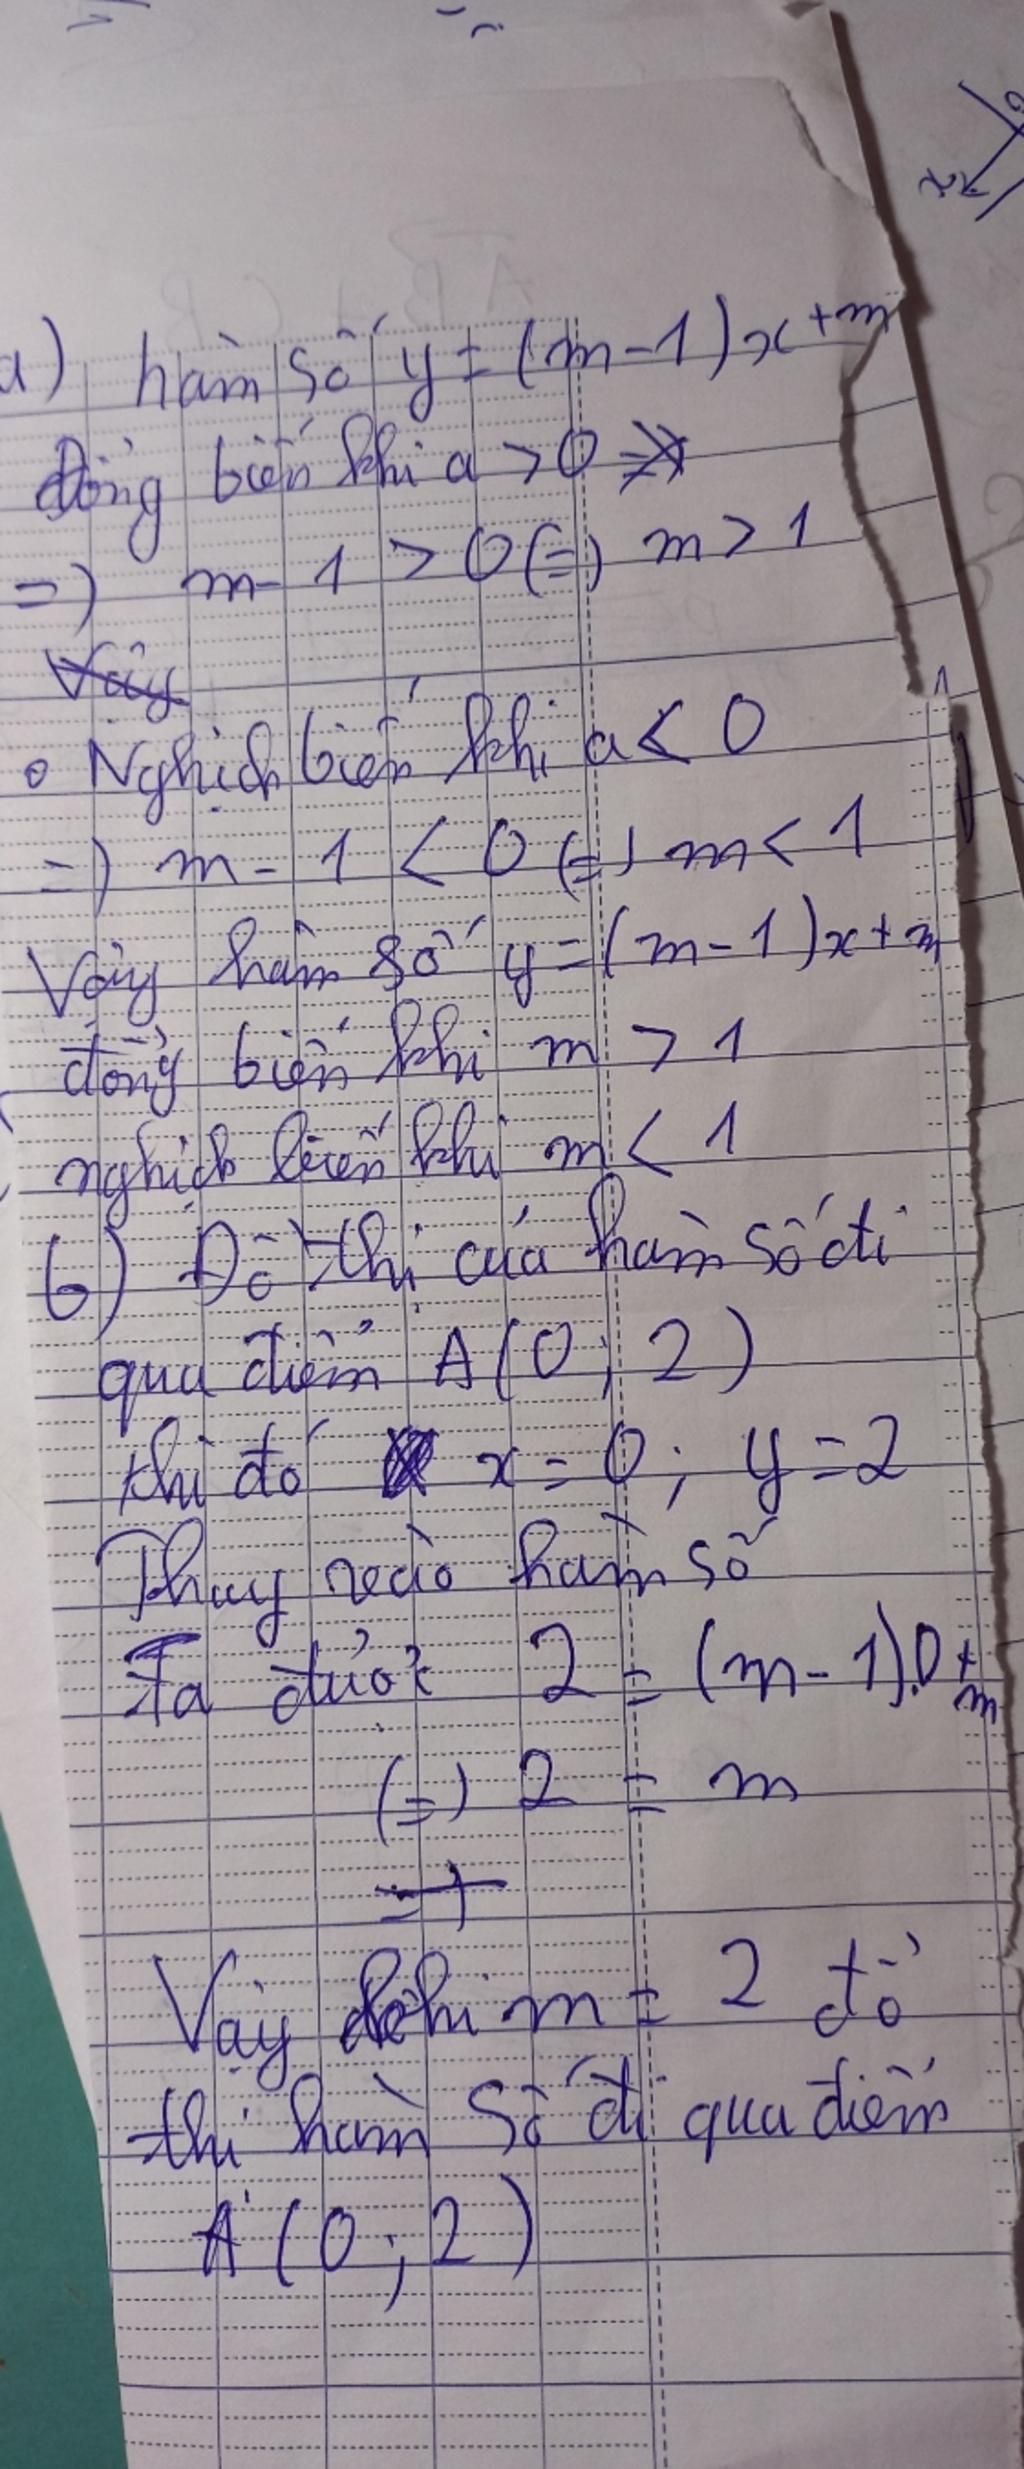 a) hàm số y = (m-1)x+m
Đồng biến khi a > 0
=) m- 1 > 0 (=) m > 1
Vậy
o Nghịch biến khi a < 0
=) m - 1 < 0 (=) m < 1
Vậy hàm số y = (m-1)x+m
đồng biến khi m > 1
nghịch biến khi m < 1
b) Đồ thị của hàm số đi
qua điểm A(0; 2)
khi đó x = 0; y = 2
Thay vào hàm số
Ta được 2 = (m-1).0+m
(=) 2 = m
Vậy khi m = 2 đồ
thị hàm số đi qua điểm
A (0; 2)